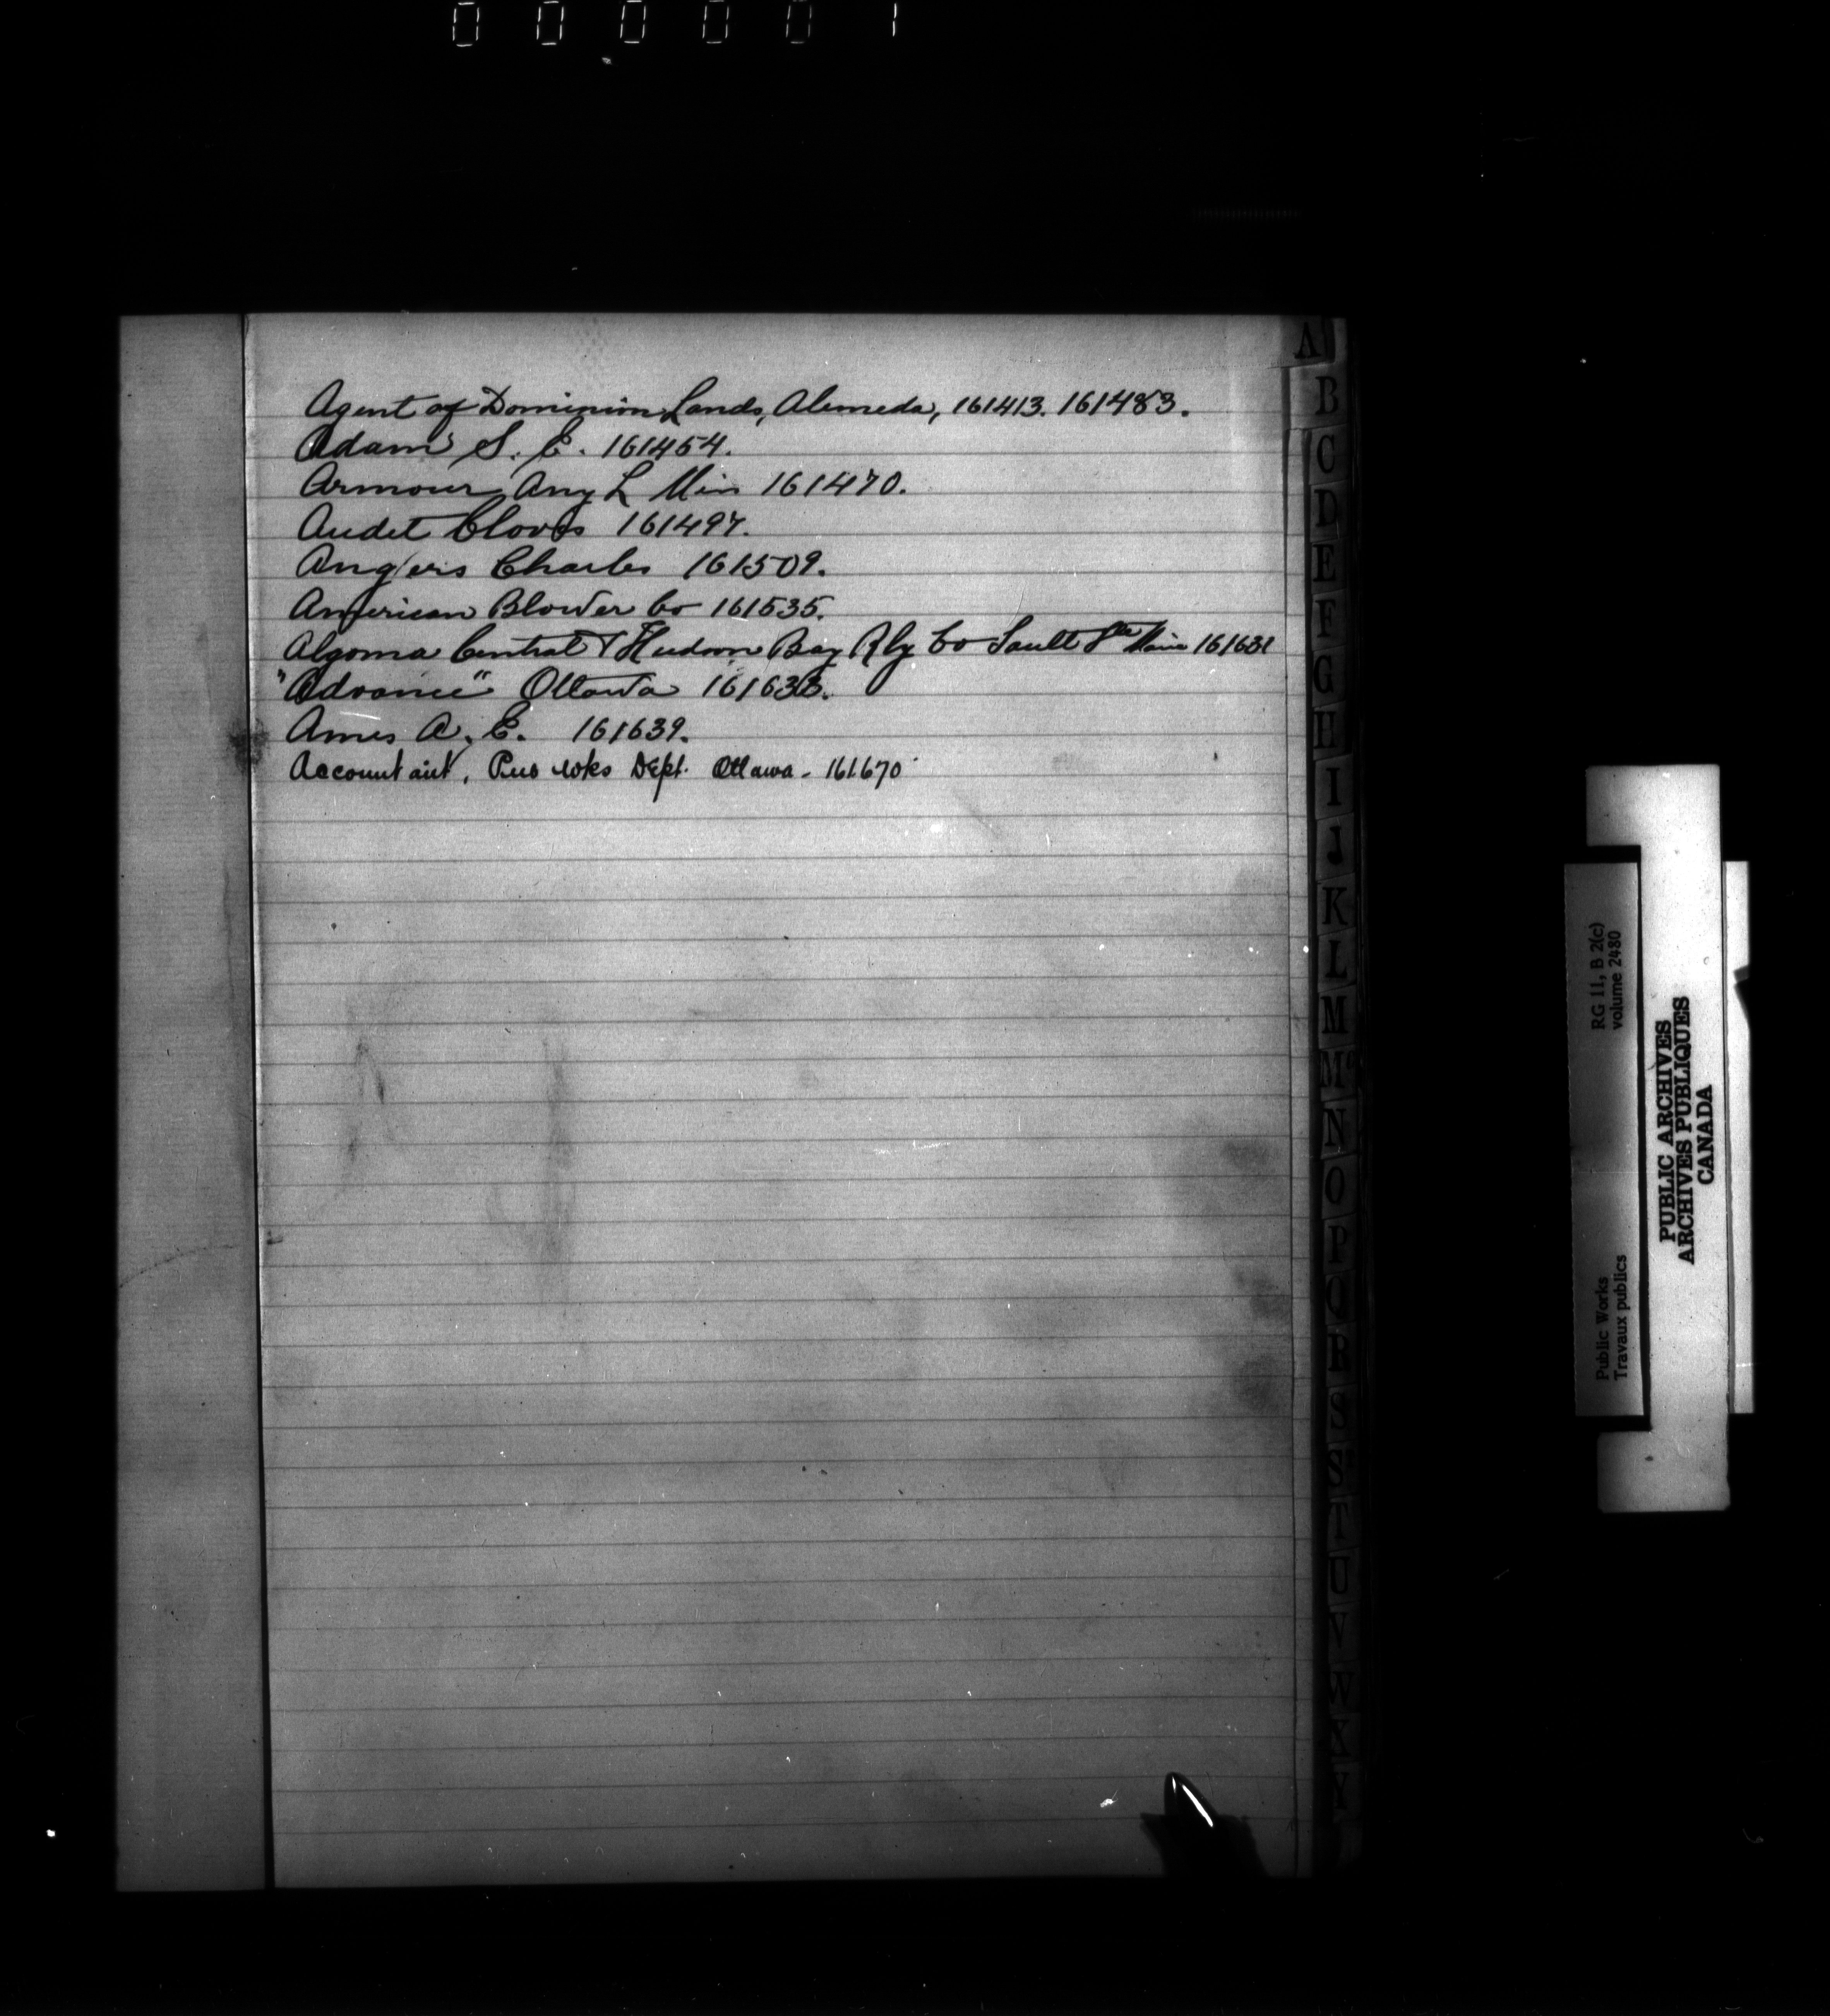 000001
Agent of Dominion Lands, Alameda, 161413. 161483.
Adams S. E. 161454.
Armour Amy L Miss 161470.
Audet Clovis 161497.
Angers Charles 161509.
American Blower Co 161535.
Algoma Central & Hudson Bay Rly Co Sault Ste Marie 161631
"Advance" Ottawa 161633.
Ames A. E. 161639.
Accountant, Pub wks Dept. Ottawa - 161670
A
B
C
D
E
F
G
H
I
J
K
L
M
Mc
N
O
P
Q
R
S
S
T
U
V
W
X
Y
RG 11, B 2(c)
volume 2480
Public Works
Travaux publics
PUBLIC ARCHIVES
ARCHIVES PUBLIQUES
CANADA